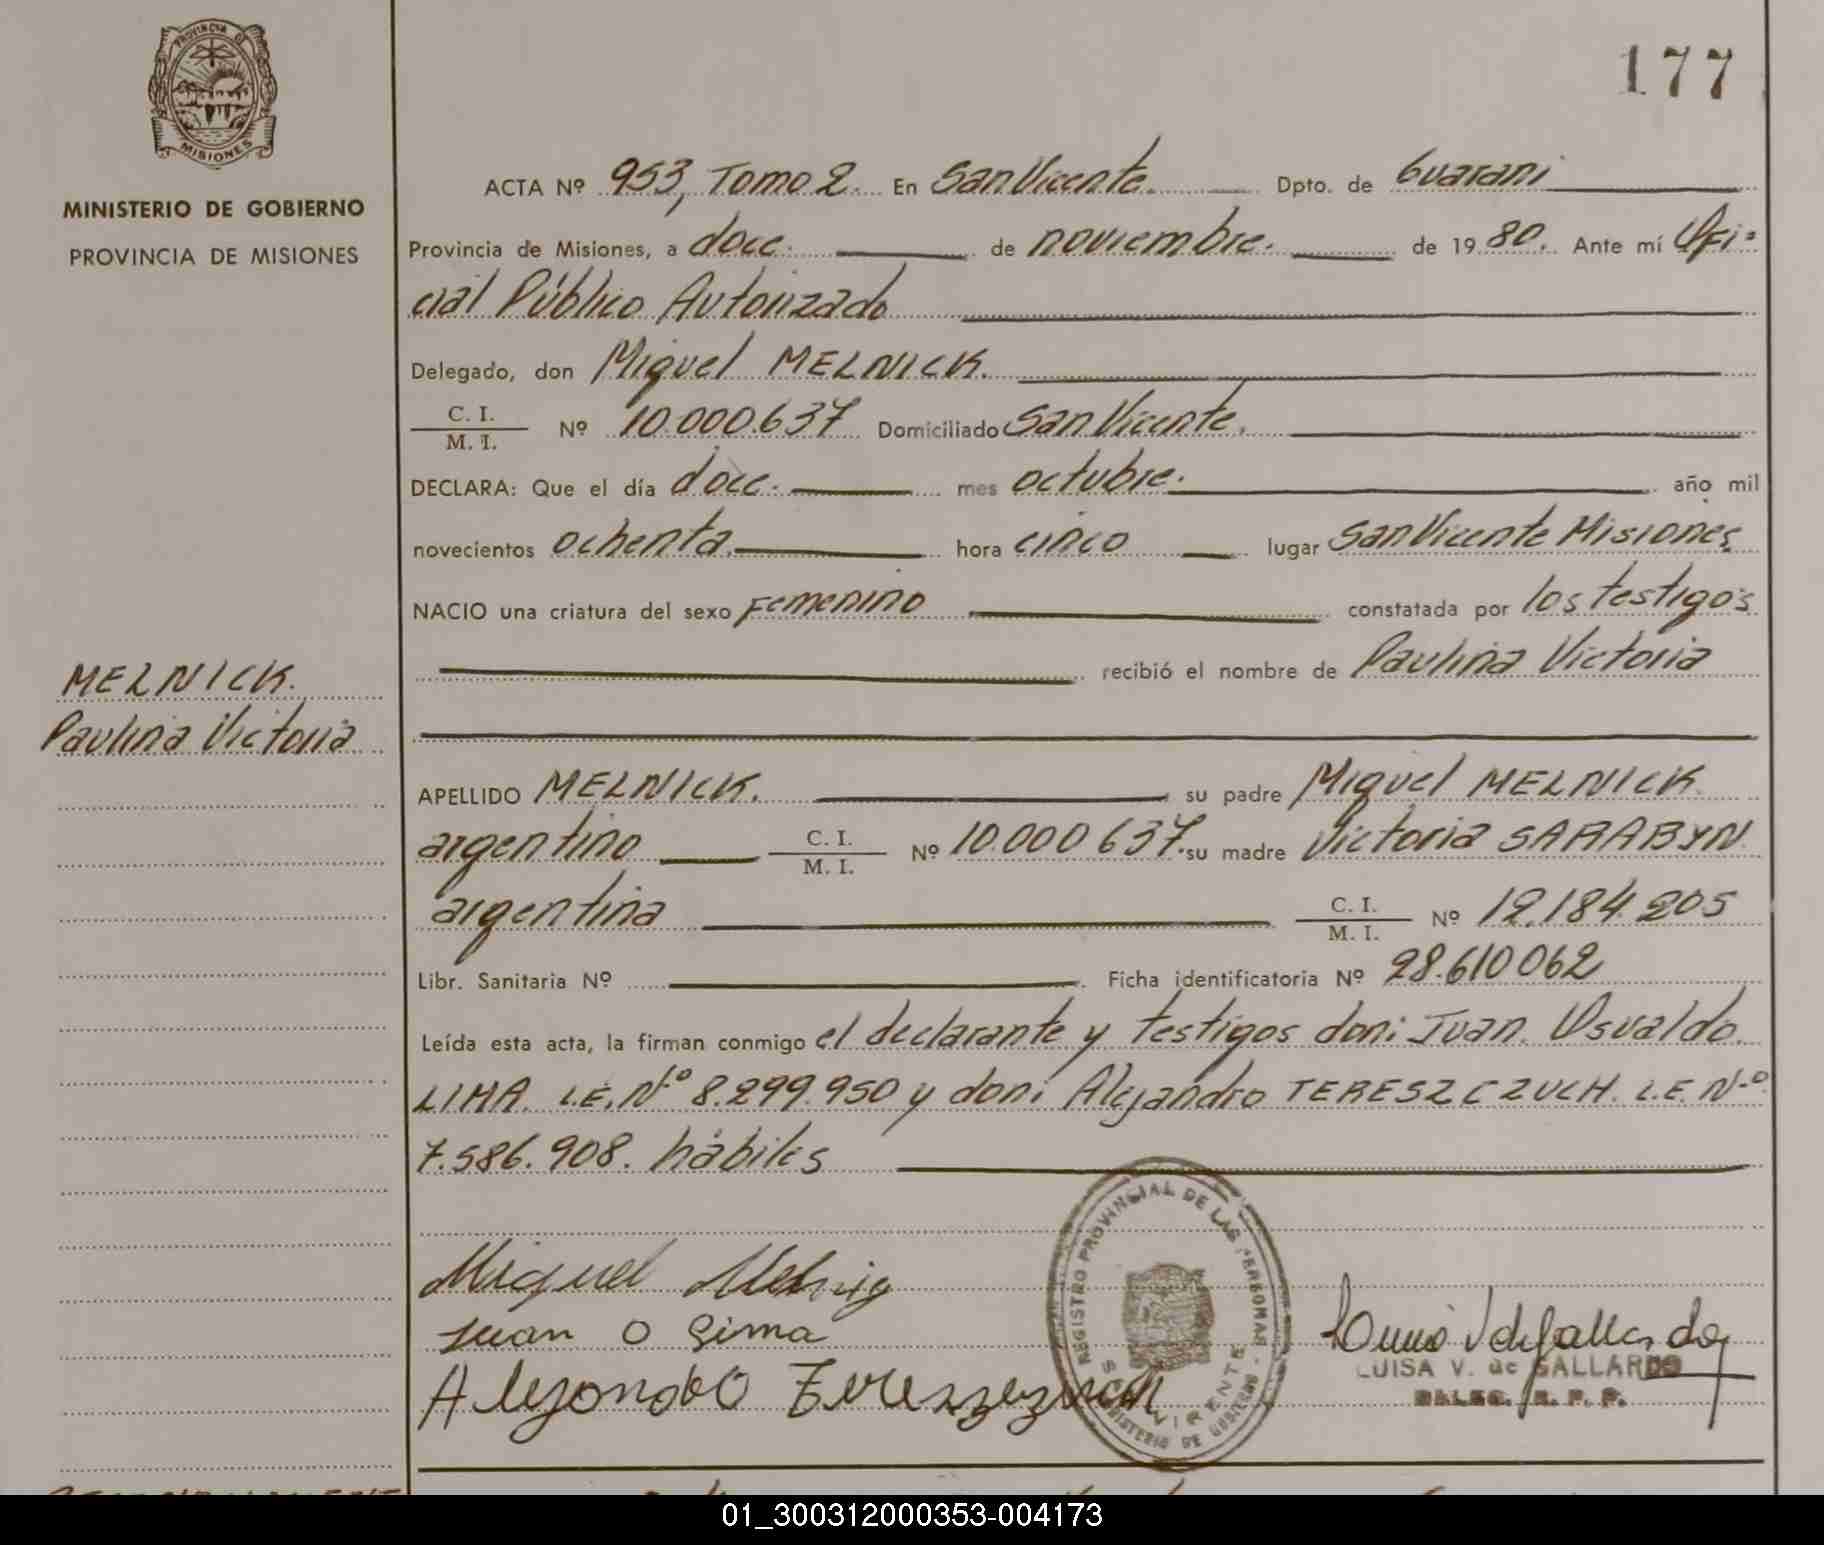 177
PROVINCIA DE
MISIONES
MINISTERIO DE GOBIERNO
PROVINCIA DE MISIONES
ACTA Nº 953, Tomo 2. En San Vicente. Dpto. de Guarani
Provincia de Misiones, a doce. de noviembre. de 19 80. Ante mí Ofi=
cial Público Autorizado
Delegado, don Miguel MELNICK.
C. I.
M. I. Nº 10.000.637 Domiciliado San Vicente.
DECLARA: Que el día doce. mes octubre. año mil
novecientos ochenta. hora cinco lugar San Vicente Misiones
NACIO una criatura del sexo Femenino constatada por los testigos
recibió el nombre de Paulina Victoria
MELNICK.
Paulina Victoria
APELLIDO MELNICK. su padre Miguel MELNICK
argentino C. I. M. I. Nº 10.000 637. su madre Victoria SARABYN
argentina C. I. M. I. Nº 12.184.205
Libr. Sanitaria Nº Ficha identificatoria Nº 28.610062
Leída esta acta, la firman conmigo el declarante y testigos don: Juan Osvaldo
LIMA. L.E. Nº 8.299.950 y don: Alejandro TERESZCZUCH. L.E. Nº
7.586.908. hábiles
Miguel Melnig
Juan O Lima
Alejandro
REGISTRO PROVINCIAL DE LAS PERSONAS
SAN VICENTE
MINISTERIO DE GOBIERNO
LUISA V. de GALLARDO
DELEG. R. P. P.
01_300312000353-004173